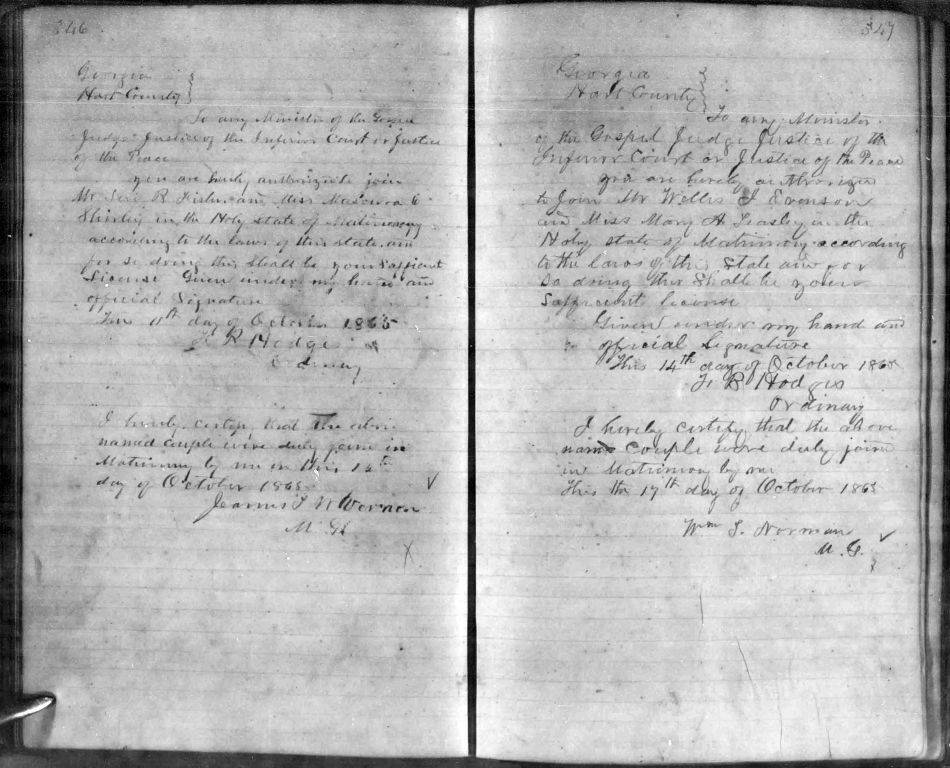 346
Georgia
Hart County
To any Minister of the Gospel
Judge Justice of the Inferior Court or Justice
of the Peace
you are hereby authorize to join
Mr R and Miss
Shirley in the Holy state of Matrimony
according to the laws of this state and
for so doing this shall be your Sufficient
License Given under my hand and
official Signature
This 11th day of October 1865
F R Hodge
I hereby certify that the above
named couple were duly joine in
Matrimony by me on this 12th
day of October 1865
Vernon
M. G.
347
Georgia
Hart County
To any Minister
of the Gospel Judge Justice of the
Inferior Court or Justice of the Peace
you are hereby authorize
to Join Mr Willis J Evonson
and Miss Mary A Teasley in the
Holy state of Matrimony according
to the laws of the State and for
So doing this Shall be your
Sufficient license
Given under my hand and
official Signature
This 14th day of October 1865
F R Hodges
Ordinary
I hereby certify that the above
named couple were duly joine
in Matrimony by me
This the 17th day of October 1865
Wm S. Norman
M. G.